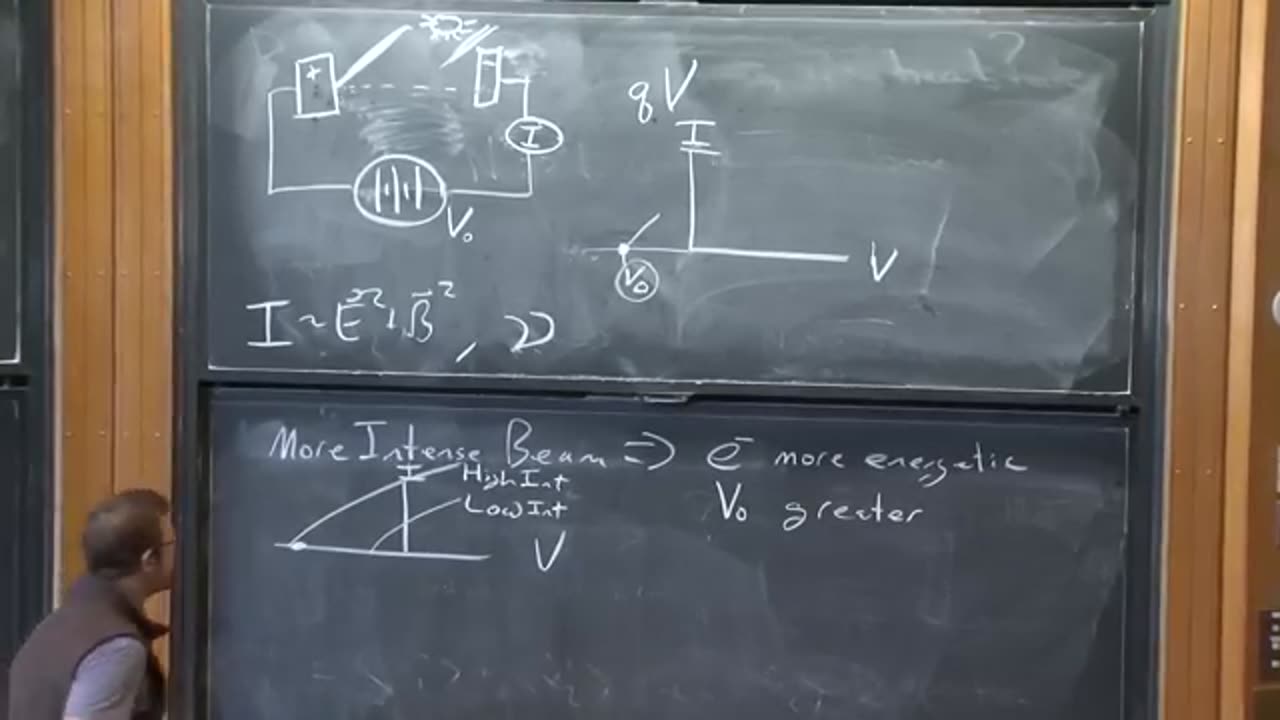 +
-
I
V₀
q V
I
V
V₀
I ~ E² + B² , ν
More Intense Beam ⇒ e⁻ more energetic
V₀ greater
I
High Int
Low Int
V